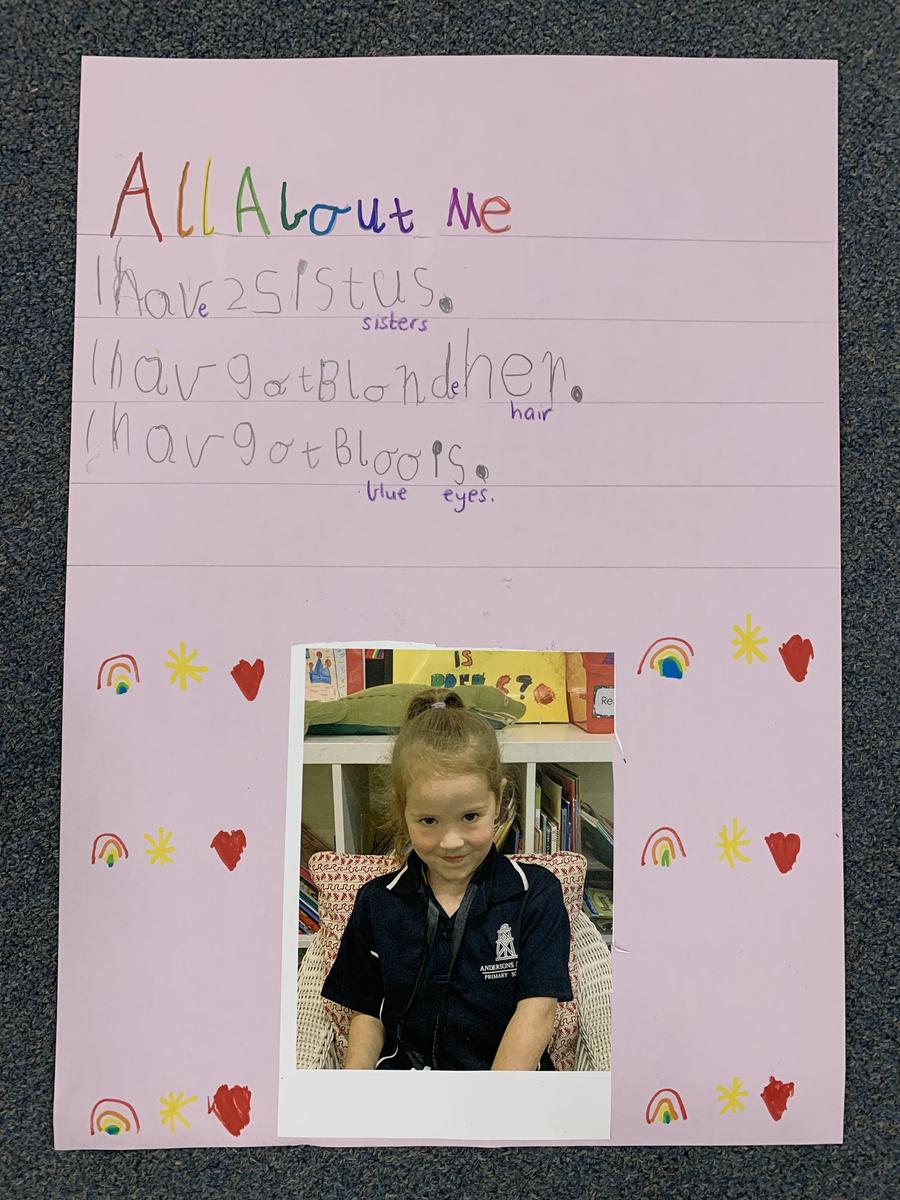 All About Me
I have 2 Sistus.
sisters
I hav got Blonde her.
hair
I hav got Bloo is.
blue eyes.
IS
Re
ANDERSONS
PRIMARY